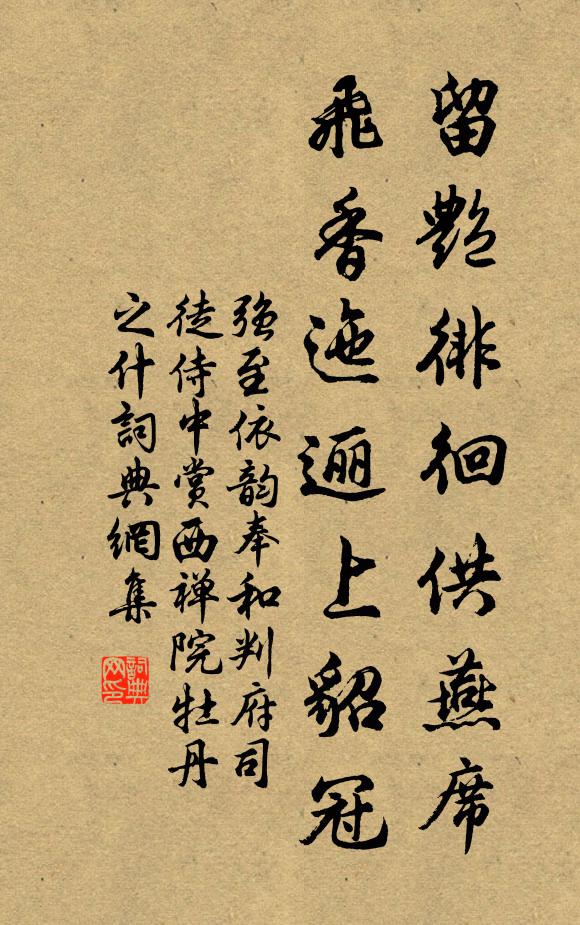 留艷徘徊供燕席
飛香迤逦上貂冠
强至依韵奉和判府司
徒侍中賞西禅院牡丹
之什詞典網集
詞典
网印